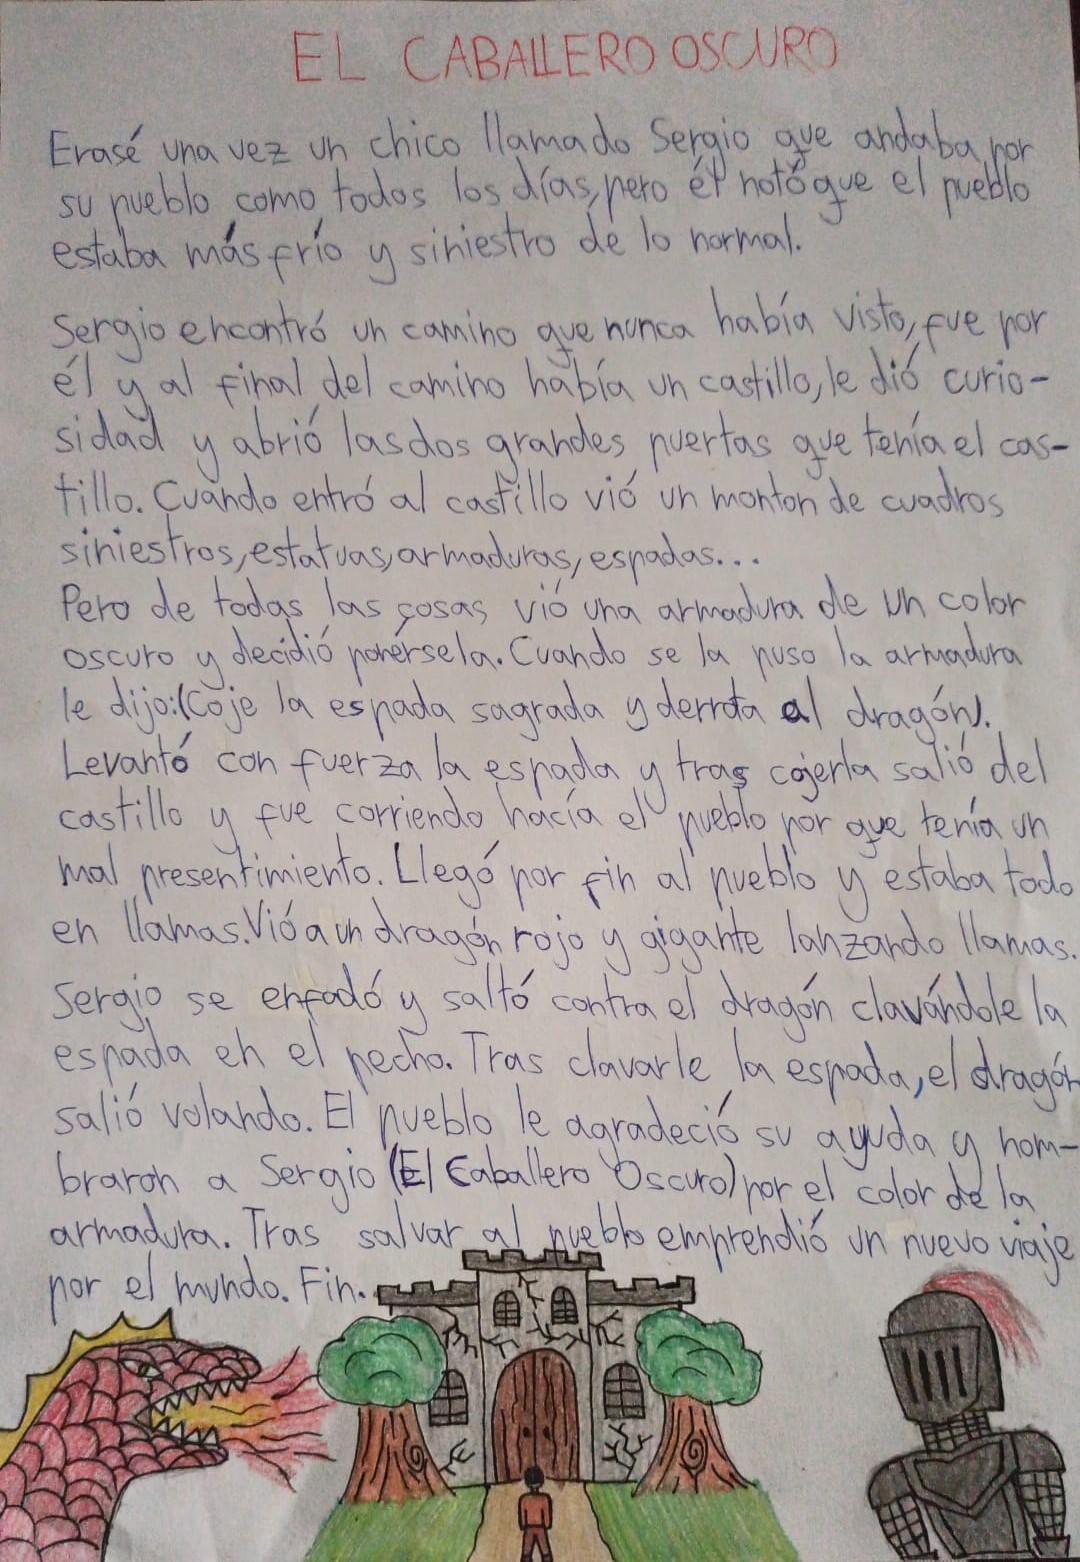 EL CABALLERO OSCURO
Erasé una vez un chico llamado Sergio que andaba por
su pueblo como todos los días, pero él notó que el pueblo
estaba más frío y siniestro de lo normal.
Sergio encontró un camino que nunca había visto, fue por
él y al final del camino había un castillo, le dió curio-
sidad y abrió las dos grandes puertas que tenía el cas-
tillo. Cuando entró al castillo vió un monton de cuadros
siniestros, estatuas, armaduras, espadas...
Pero de todas las cosas vió una armadura de un color
oscuro y decidió ponérsela. Cuando se la puso la armadura
le dijo: (Coje la espada sagrada y derrota al dragón).
Levantó con fuerza la espada y tras cojerla salió del
castillo y fue corriendo hacía el pueblo por que tenía un
mal presentimiento. Llegó por fin al pueblo y estaba todo
en llamas. Vió a un dragón rojo y gigante lanzando llamas.
Sergio se enfadó y saltó contra el dragón clavándole la
espada en el pecho. Tras clavarle la espada, el dragón
salió volando. El pueblo le agradeció su ayuda y nom-
braron a Sergio (El Caballero Oscuro) por el color de la
armadura. Tras salvar al pueblo emprendió un nuevo viaje
por el mundo. Fin.